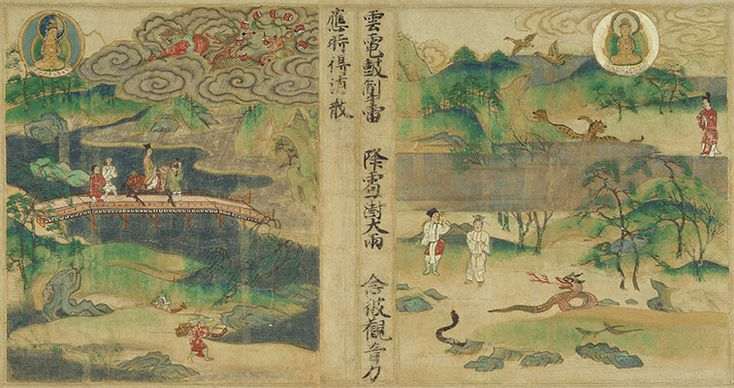 雲雷鼓掣電 降雹澍大雨 念彼觀音力
應時得消散